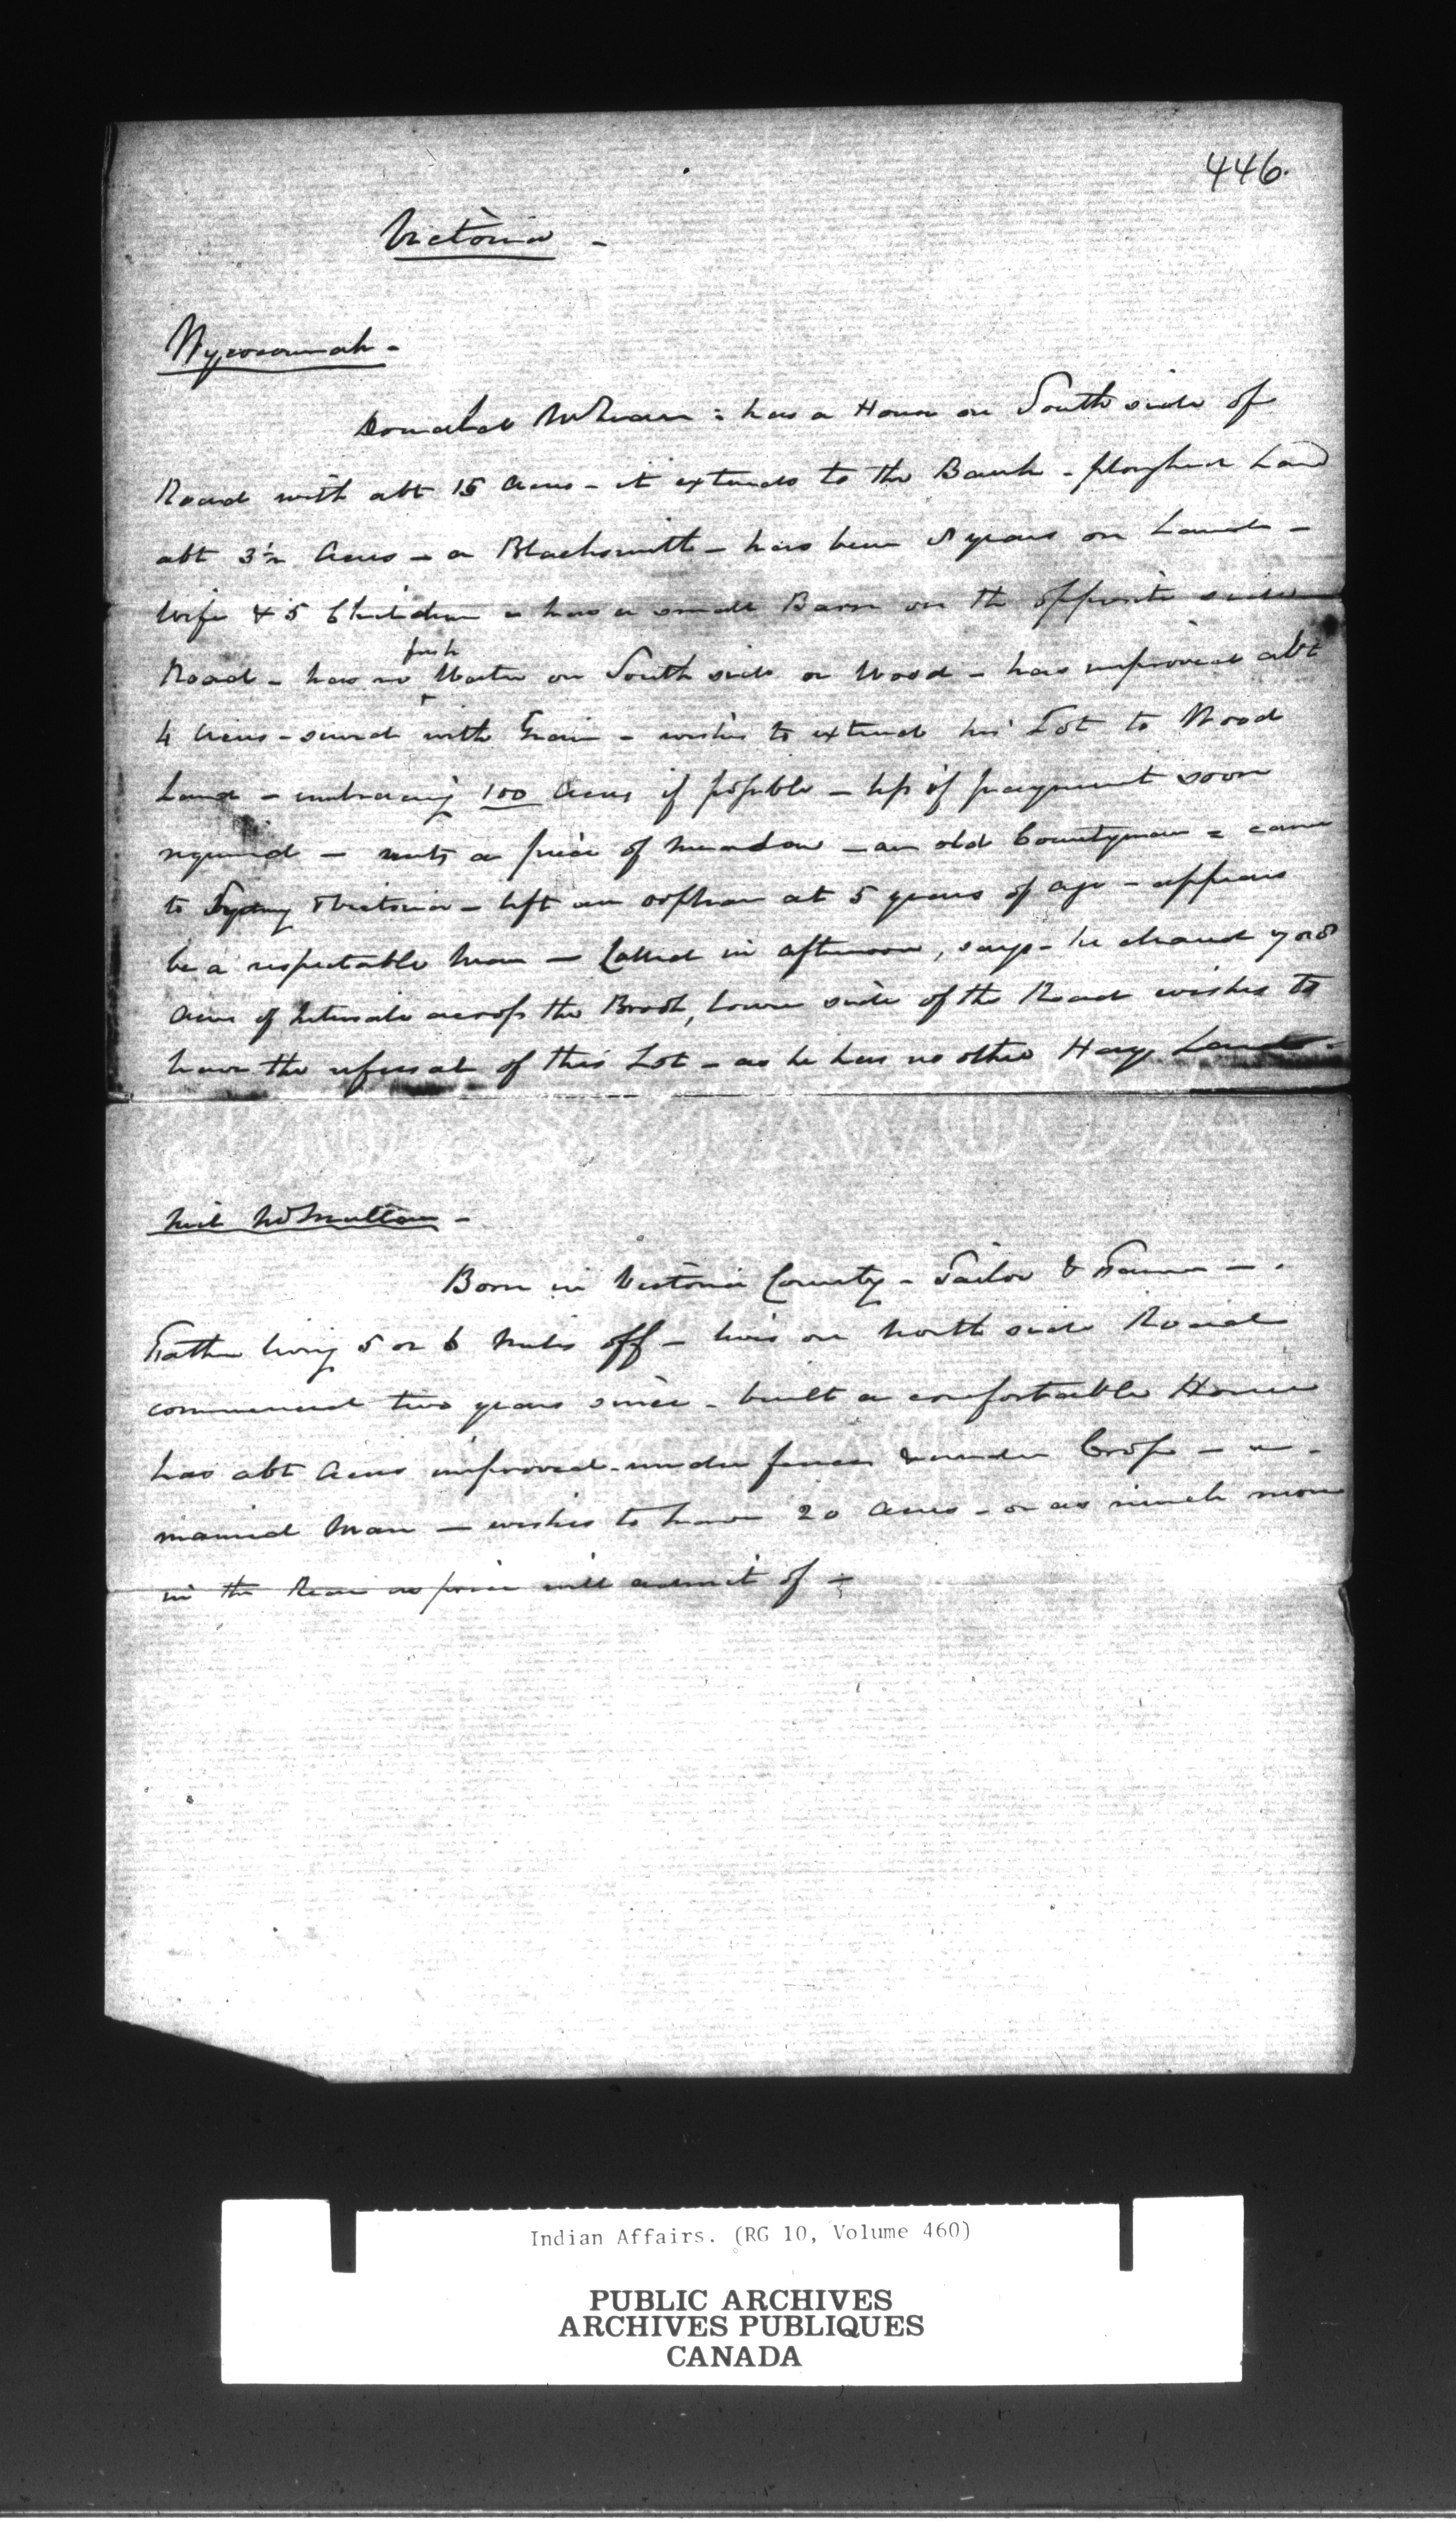 446.
Victoria -
Wycocomah -
Donald McLean : has a House on South side of
Road with abt 15 Acres - it extends to the Bank - ploughed Land
abt 3½ Acres - a Blacksmith - has been 8 years on Land -
Wife & 5 Children - has a small Barn on the opposite side
Road - has no fresh Water on South side or Wood - has improved abt
4 Acres - sowed with Grain - wishes to extend his Lot to Wood
Land - embracing 100 Acres if possible - less if payment soon
required - wants a piece of meadow - an old Countryman = came
to Sydney Victoria - left an orphan at 5 years of age - appears
be a respectable man - Called in afternoon, says - he cleared 7 or 8
Acres of Intervale across the Brook, lower side of the Road wishes to
have the refusal of this Lot - as he has no other Hay Land -
Neil McMullan -
Born in Victoria County - Tailor & Farmer -
Father living 5 or 6 miles off - lives on North side Road
commenced two years since - built a comfortable House
has abt Acres improved - under fence & under Crop - un-
married Man - wishes to have 20 Acres - or as much more
in the Rear as price will admit of -
Indian Affairs. (RG 10, Volume 460)
PUBLIC ARCHIVES
ARCHIVES PUBLIQUES
CANADA